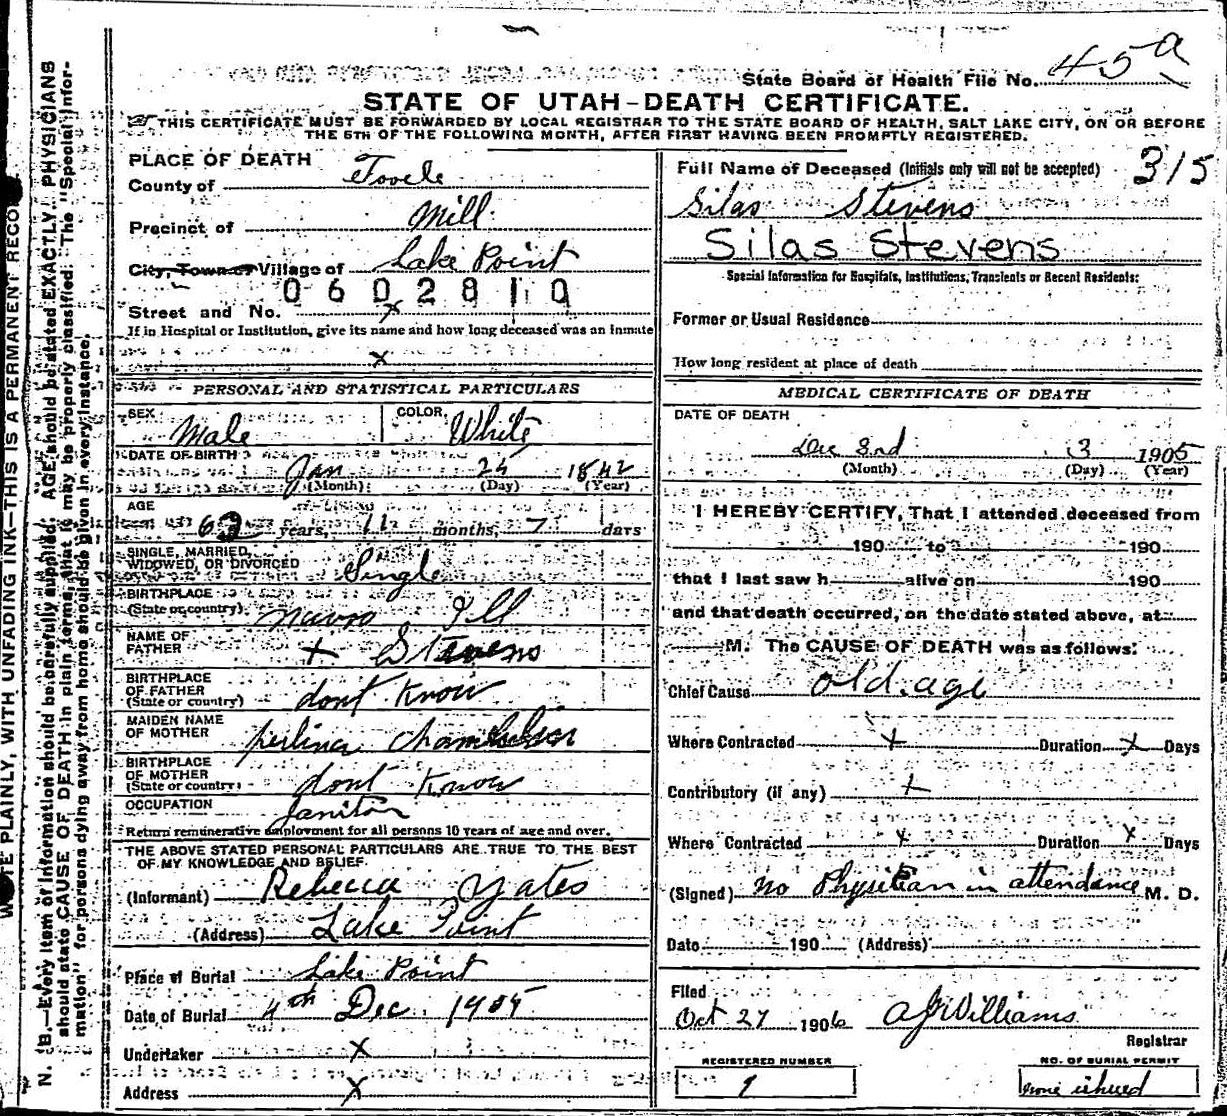 State Board of Health File No. 45a
STATE OF UTAH-DEATH CERTIFICATE.
THIS CERTIFICATE MUST BE FORWARDED BY LOCAL REGISTRAR TO THE STATE BOARD OF HEALTH, SALT LAKE CITY, ON OR BEFORE
THE 5TH OF THE FOLLOWING MONTH, AFTER FIRST HAVING BEEN PROMPTLY REGISTERED.
PLACE OF DEATH
County of Tooele
Precinct of Mill
City, Town or Village of Lake Point
0602810
Street and No. x
If in Hospital or Institution, give its name and how long deceased was an inmate
x
PERSONAL AND STATISTICAL PARTICULARS
SEX Male COLOR White
DATE OF BIRTH Jan 25 1842
(Month) (Day) (Year)
AGE
63 years, 11 months, 7 days
SINGLE, MARRIED,
WIDOWED, OR DIVORCED Single
BIRTHPLACE
(State or country) Navoo Ill
NAME OF
FATHER + Stevens
BIRTHPLACE
OF FATHER
(State or country) dont Know
MAIDEN NAME
OF MOTHER
BIRTHPLACE
OF MOTHER
(State or country) dont Know
OCCUPATION Janitor
Return remunerative employment for all persons 10 years of age and over.
THE ABOVE STATED PERSONAL PARTICULARS ARE TRUE TO THE BEST
OF MY KNOWLEDGE AND BELIEF.
(Informant) Rebecca Yates
(Address) Lake Point
Place of Burial Lake Point
Date of Burial 4th Dec. 1905
Undertaker x
Address x
Full Name of Deceased (Initials only will not be accepted) 315
Silas Stevens
Silas Stevens
Special Information for Hospitals, Institutions, Transients or Recent Residents:
Former or Usual Residence
How long resident at place of death
MEDICAL CERTIFICATE OF DEATH
DATE OF DEATH
Dec 3rd 3 1905
(Month) (Day) (Year)
I HEREBY CERTIFY, That I attended deceased from
190 to 190
that I last saw h alive on 190
and that death occurred, on the date stated above, at
M. The CAUSE OF DEATH was as follows:
Chief Cause old age
Where Contracted x Duration x Days
Contributory (if any) x
Where Contracted x Duration x Days
(Signed) No Physician in attendance M. D.
Date 190 (Address)
Filed
Oct 27 1906 AJ Williams
Registrar
REGISTERED NUMBER
1
NO. OF BURIAL PERMIT
none issued
N. B.—Every item of information should be carefully supplied. AGE should be stated EXACTLY. PHYSICIANS
should state CAUSE OF DEATH in plain terms, that it may be properly classified. The "Special Infor-
mation" for persons dying away from home should be given in every instance.
PLAINLY, WITH UNFADING INK—THIS IS A PERMANENT RECO